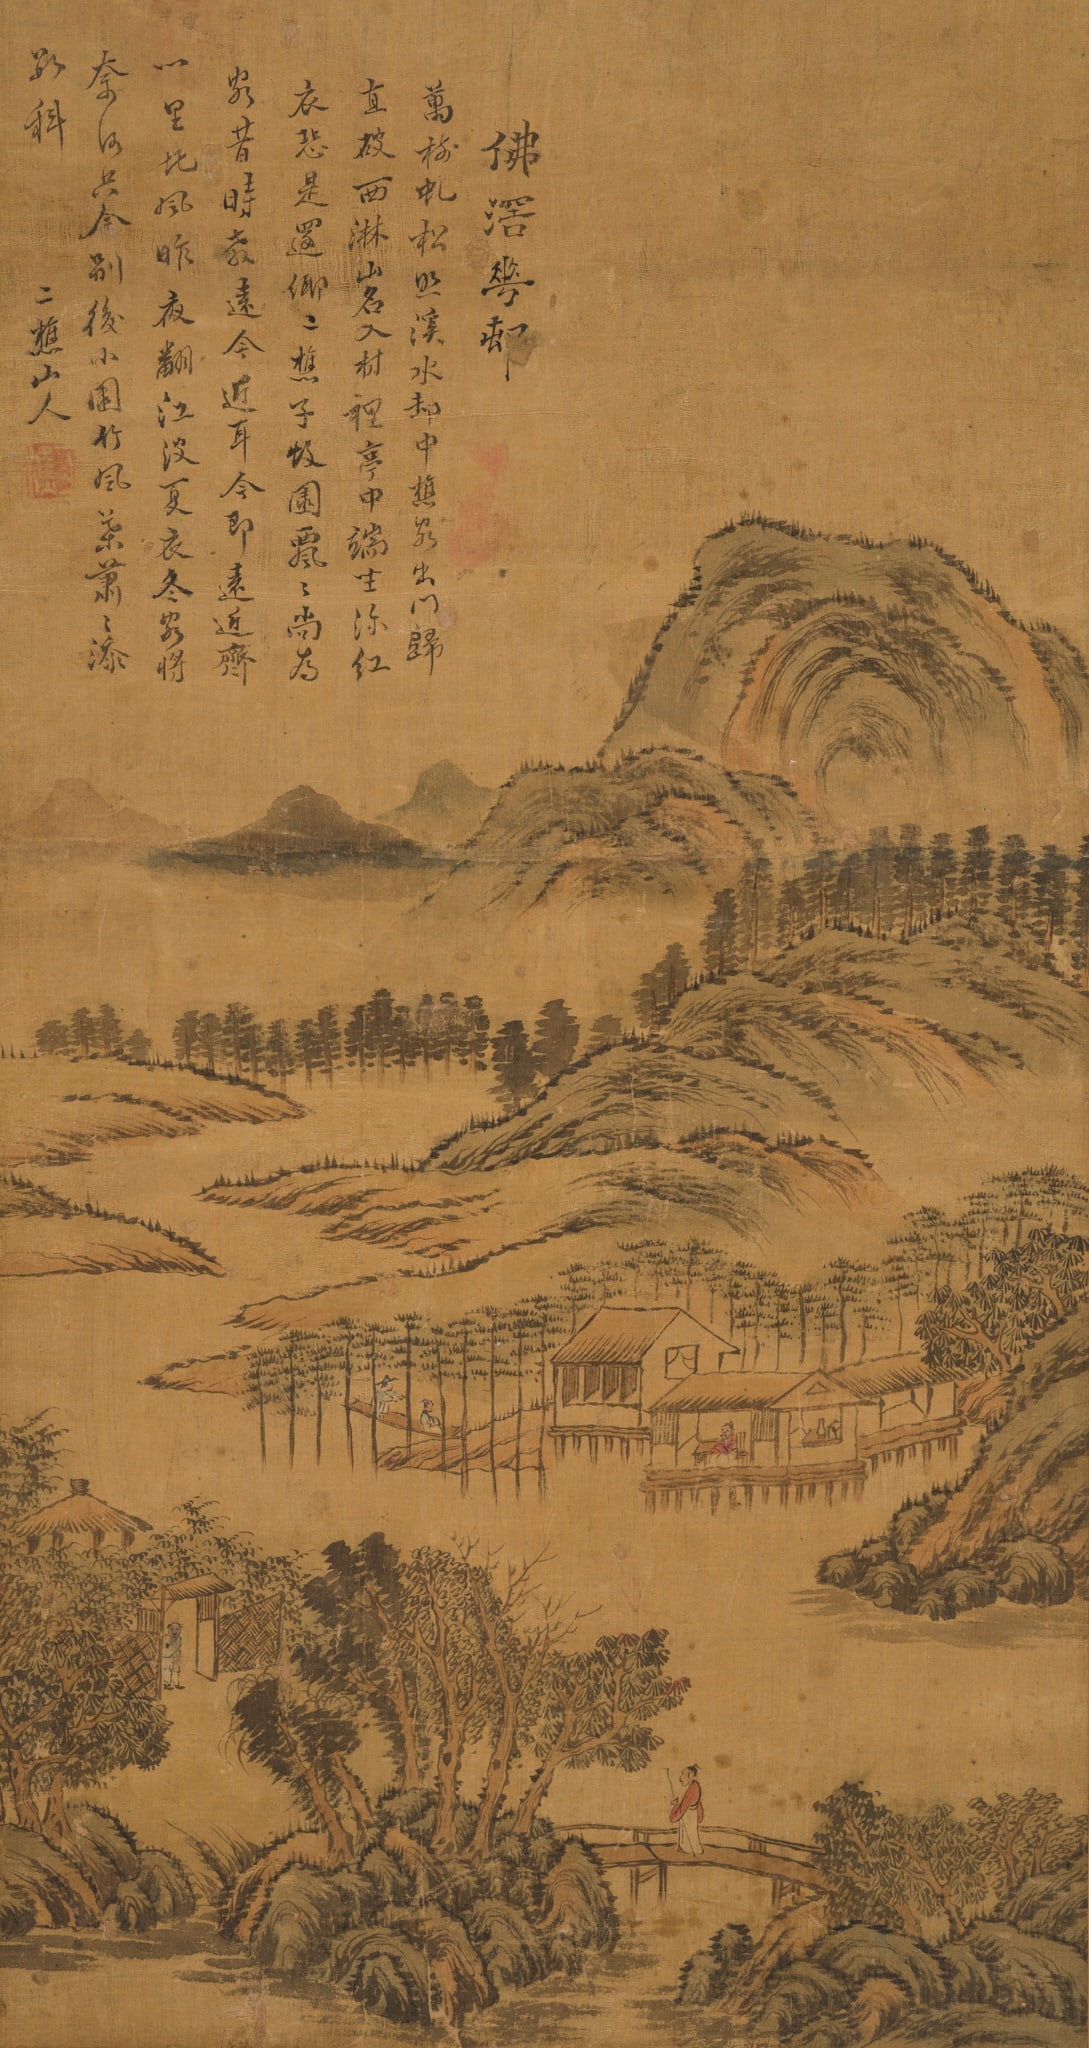 佛滘學邨
萬樹虬松照溪水邨中樵客出門歸
直破西淋山名入村裡亭中端坐深紅
衣恐是還鄉〻樵子故園飄〻尚為
客昔時教遠今近耳今即遠近齊
心里北風昨夜翻江波夏衣冬客將
奈何只今別後小園竹風葉蕭〻添
科
二樵山人